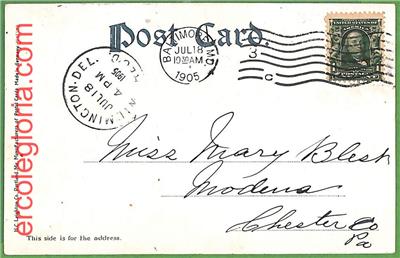 Post Card.
BALTIMORE, MD.
JUL 18
10 30 AM
1905
3
C
WILMINGTON, DEL.
JUL 18
4 PM
1905
REC'D.
UNITED STATES OF AMERICA
Miss Mary Blesh
Modena
Chester Co
Pa
This side is for the address.
ercolegloria.com